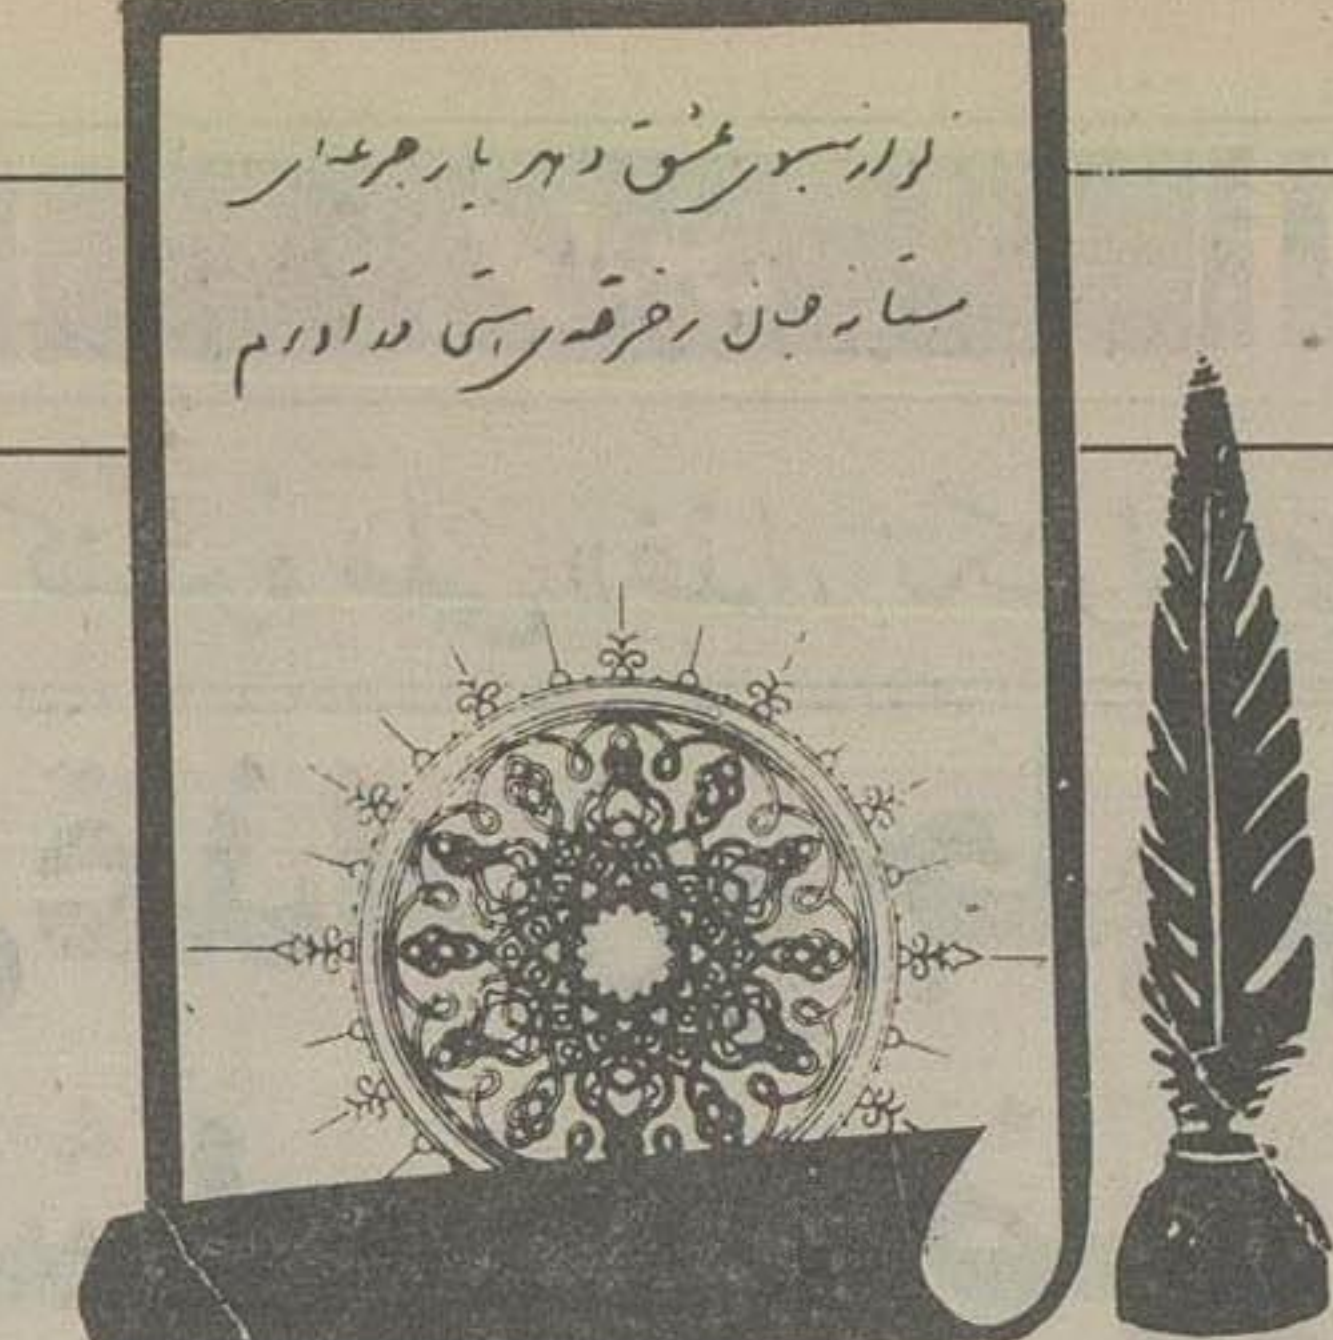 گر از سبوی عشق دهد یار جرعه‌ای
مستانه جان ز خرقه‌ی هستی درآورم